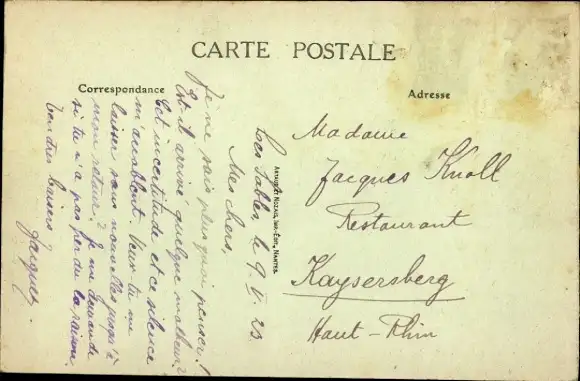 CARTE POSTALE
Correspondance
Adresse
Les Sables, le 9. V. 23
Mes chers,
Je ne sais plus quoi penser!
Est-il arrivé quelque malheur?
Cet incertitude et ce silence
m'accablent. Veux-tu me
laisser sans nouvelles jusqu'à
mon retour? Je me demande
si tu n'a pas perdu la raison.
Tendres baisers
Jacques.
ARTAUD ET NOZAIS, IMP.-ÉDIT., NANTES
Madame
Jacques Knoll
Restaurant
Kaysersberg
Haut-Rhin